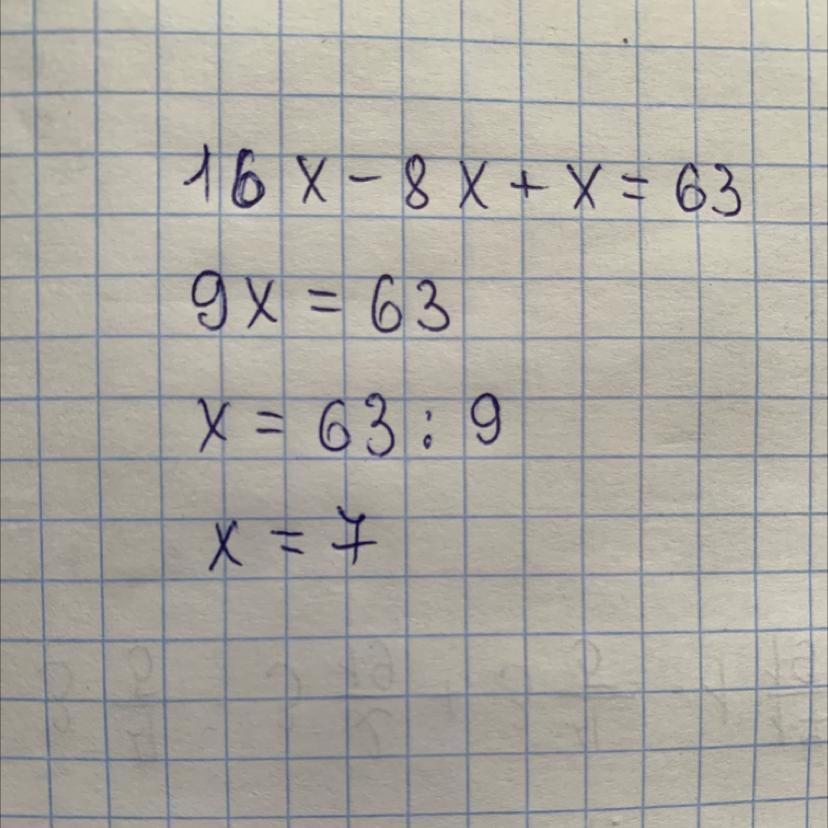 16x - 8x + x = 63
9x = 63
x = 63 : 9
x = 7